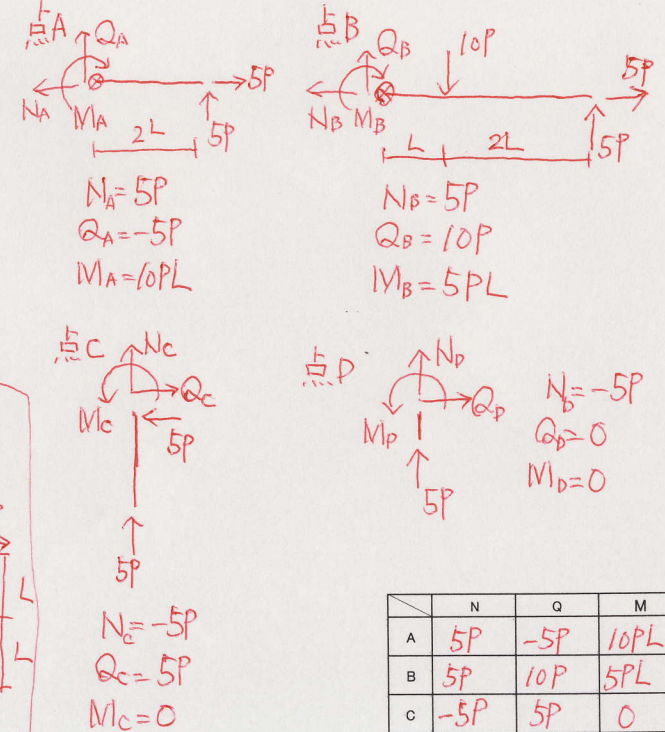 点A
QA
5P
NA
MA
5P
2L
NA=5P
QA=-5P
MA=10PL
点B
QB
10P
5P
NB
MB
5P
L
2L
NB=5P
QB=10P
MB=5PL
点C
NC
QC
MC
5P
5P
NC=-5P
QC=5P
MC=0
点D
ND
QD
MD
5P
ND=-5P
QD=0
MD=0
L
L
N Q M
A 5P -5P 10PL
B 5P 10P 5PL
C -5P 5P 0